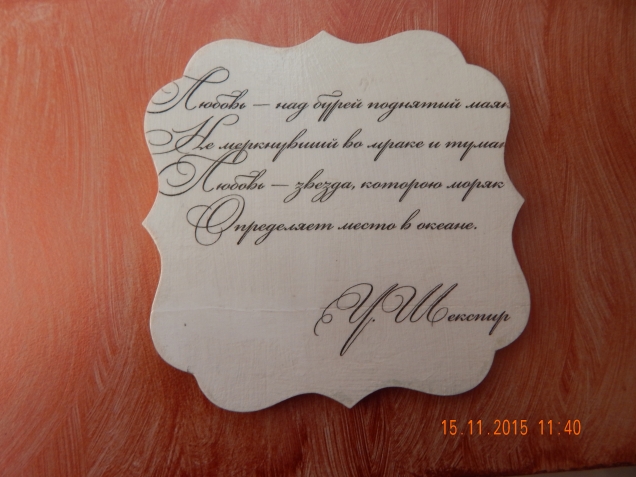 Любовь — над бурей поднятый маяк
Не меркнувший во мраке и туман
Любовь — звезда, которою моряк
Определяет место в океане.
У. Шекспир
15.11.2015 11:40